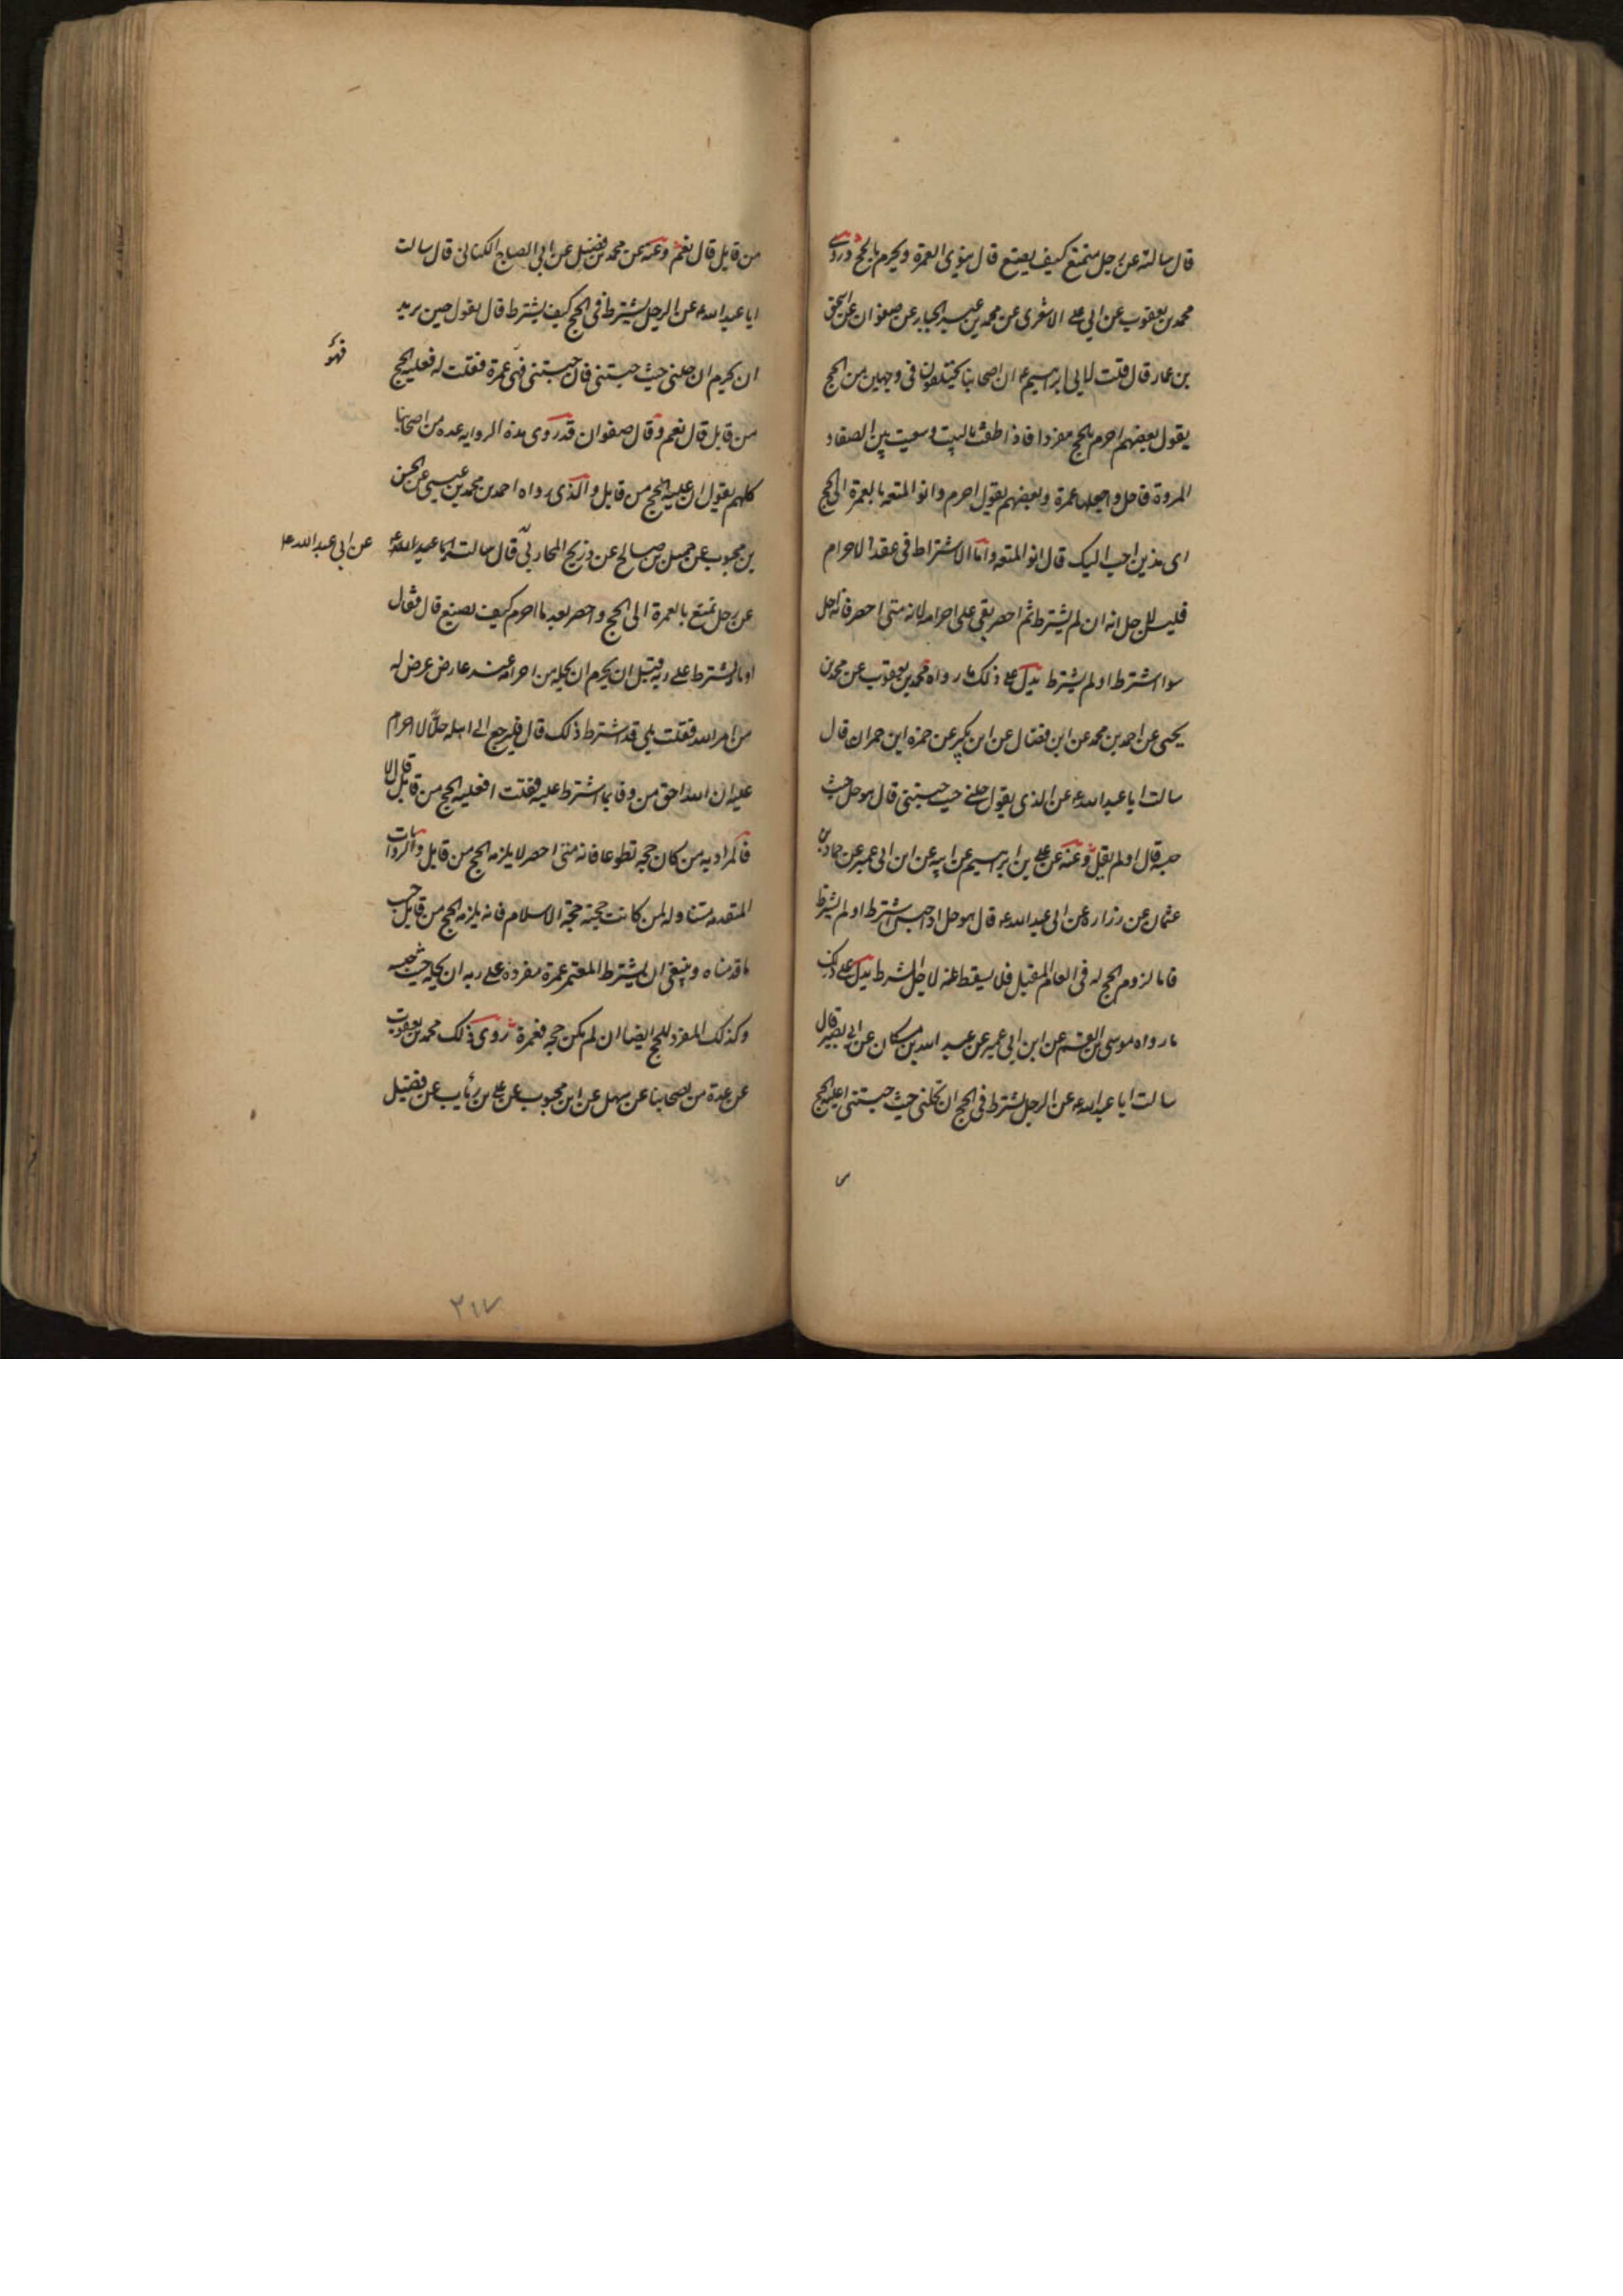 قال سالته عن رجل متمتع كيف يصنع قال ينوى العمرة ويحرم بالحج وروى
محمد بن يعقوب عن ابي على الاشعرى عن محمد بن عبد الجبار عن صفوان عن اسحق
بن عمار قال قلت لابي ابرهيم ع ان اصحابنا يختلفون فى وجهين من الحج
يقول بعضهم احرم بالحج مفردا فاذا طفت بالبيت وسعيت بين الصفا و
المروة فاحل واجعلها عمرة وبعضهم يقول احرم وانو المتعه بالعمرة الى الحج
اى هذين احب اليك قال انو المتعه واما الاشتراط فى عقد الاحرام
فليس لاجل انه ان لم يشترط ثم احصر بقى على احرامه لانه متى احصر فانه احل
سوا اشترط او لم يشترط يدل على ذلك ما رواه محمد بن يعقوب عن محمد بن
يحيى عن احمد بن محمد عن ابن فضال عن ابن بكير عن حمزه ابن حمران قال
سالت ابا عبدالله ع عن الذى يقول حلنى حيث حبستنى قال هو حل حيث
حبسه قال او لم يقل وعنه عن على بن ابرهيم عن ابيه عن ابن ابى عمير عن حماد بن
عثمان عن زراره عن ابى عبدالله ع قال هو حل اذا حبس اشترط او لم يشترط
فاما لزوم الحج له فى العام المقبل فلا يسقط عنه لاجل الشرط يدل على ذلك
ما رواه موسى بن القسم عن ابن ابى عمير عن عبد الله بن مسكان عن ابى بصير قال
سالت ابا عبدالله ع عن الرجل يشترط فى الحج ان تحلنى حيث حبستنى اعليه الحج
من قابل قال نعم وعنه عن محمد بن فضيل عن ابى الصباح الكنانى قال سالت
ابا عبدالله ع عن الرجل يشترط فى الحج كيف يشترط قال يقول حين يريد
ان يحرم ان حلنى حيث حبستنى فان حبستنى فهى عمرة فقلت له فعليه الحج
من قابل قال نعم وقال صفوان قد روى هذه الروايه عده من اصحابنا
كلهم يقول ان عليه الحج من قابل والذى رواه احمد بن محمد بن عيسى عن الحسن
بن محبوب عن جميل بن صالح عن ذريح المحاربى قال سالت ابا عبدالله ع
عن ابى عبدالله ع
عن رجل تمتع بالعمرة الى الحج واحصر بعد ما احرم كيف يصنع قال فقال
اوما اشترط على ربه قبل ان يحرم ان يحله من احرامه عند عارض عرض له
من امر الله فقلت بلى قد اشترط ذلك قال فليرجع الى اهله حلا لا احرام
عليه ان الله احق من وفا بما اشترط عليه فقلت افعليه الحج من قابل قال لا
فالمراد به من كان حجه تطوعا فانه متى احصر لا يلزمه الحج من قابل والروايات
المتقدمه متناوله لمن كانت حجته حجة الاسلام فانه يلزمه الحج من قابل حسب
ما قدمناه وينبغى ان يشترط المعتمر عمرة مفردة على ربه ان يحله حيث حبسه
وكذلك المفرد للحج ايضا ان لم يكن حجه فعمرة روى ذلك محمد بن يعقوب
عن عدة من اصحابنا عن سهل عن ابن محبوب عن على بن رئاب عن فضيل
٢١٧